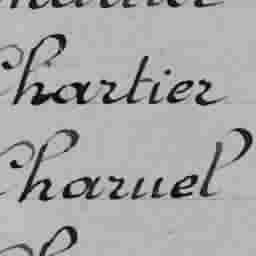 Chartier
Charuel